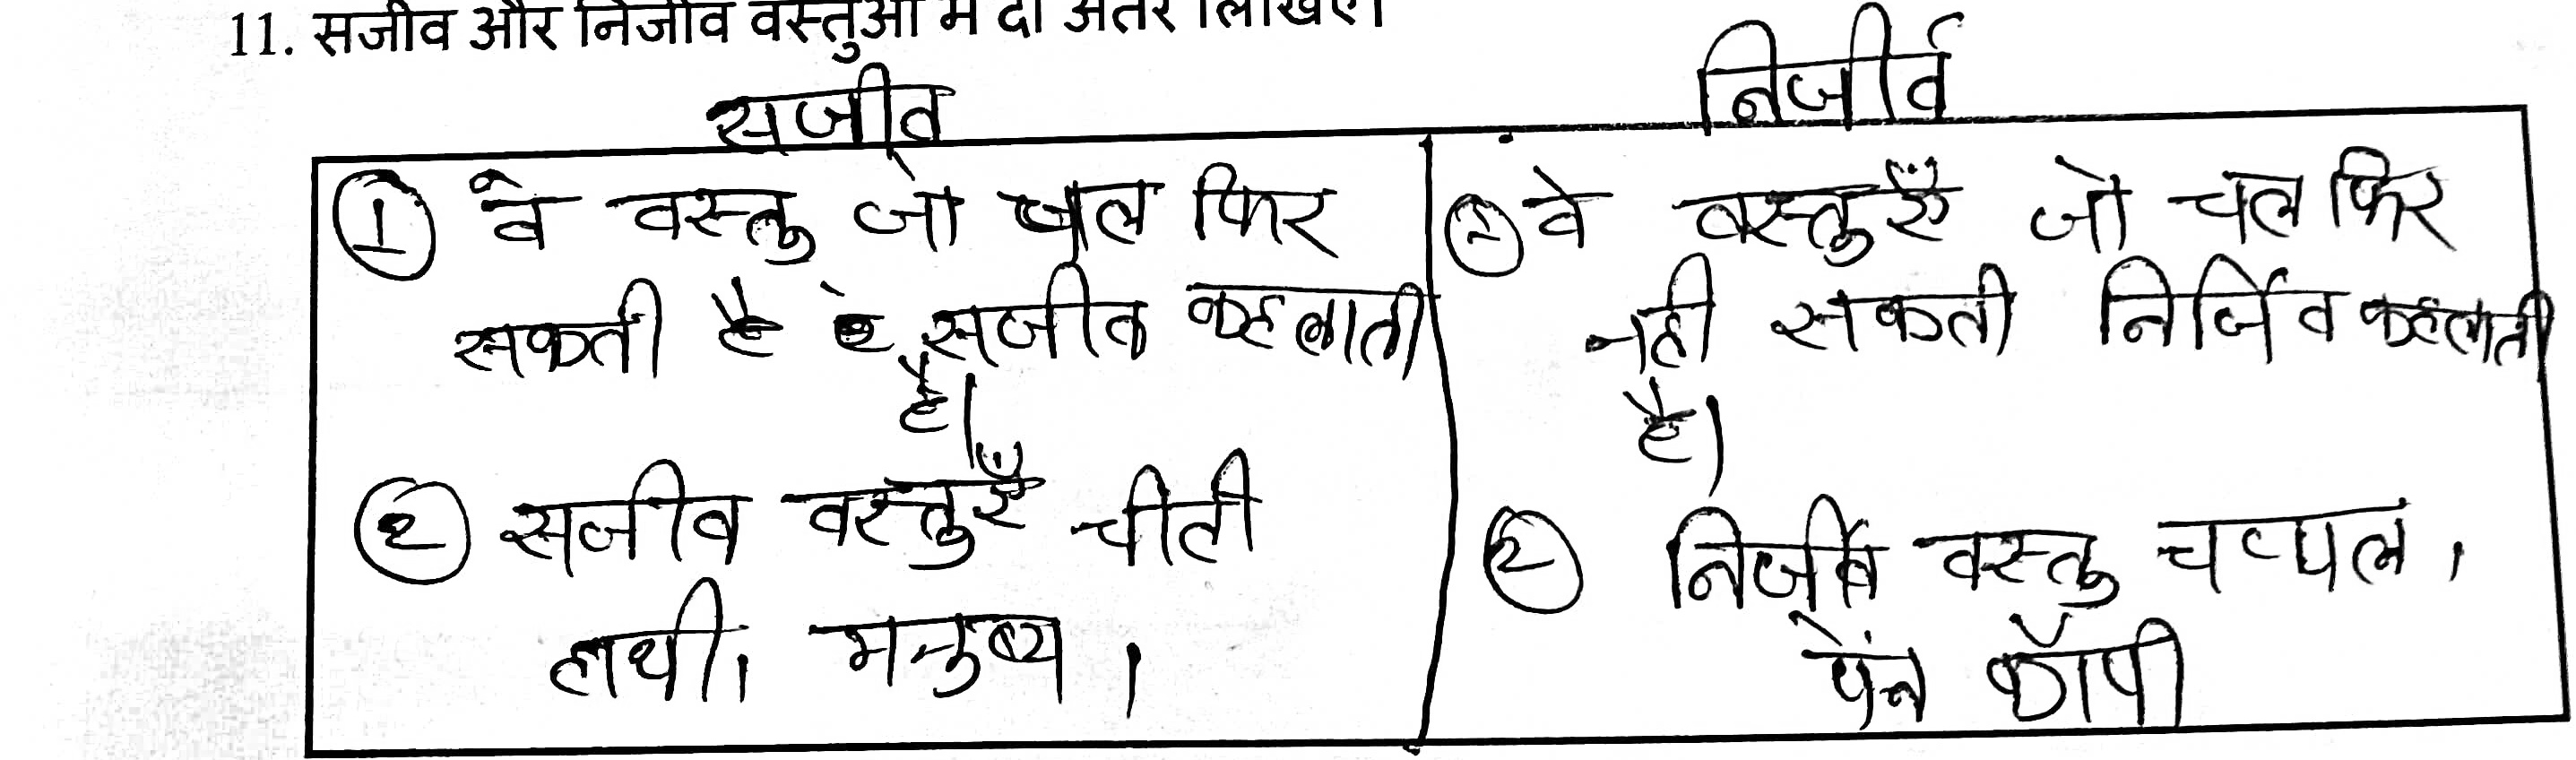 11. सजीव और निर्जीव वस्तुओं में दो अंतर लिखिए।
सजीव
निजीर्व
① वे वस्तु जो चल फिर
सकती है वे सजीव कहलाती
है।
② सजीव वस्तुएँ चीटी
हाथी। मनुष्य।
① वे वस्तुएँ जो चल फिर
नही सकती निर्जिव कहलाती
है।
② निर्जीव वस्तु चप्पल।
पेंन कॉपी